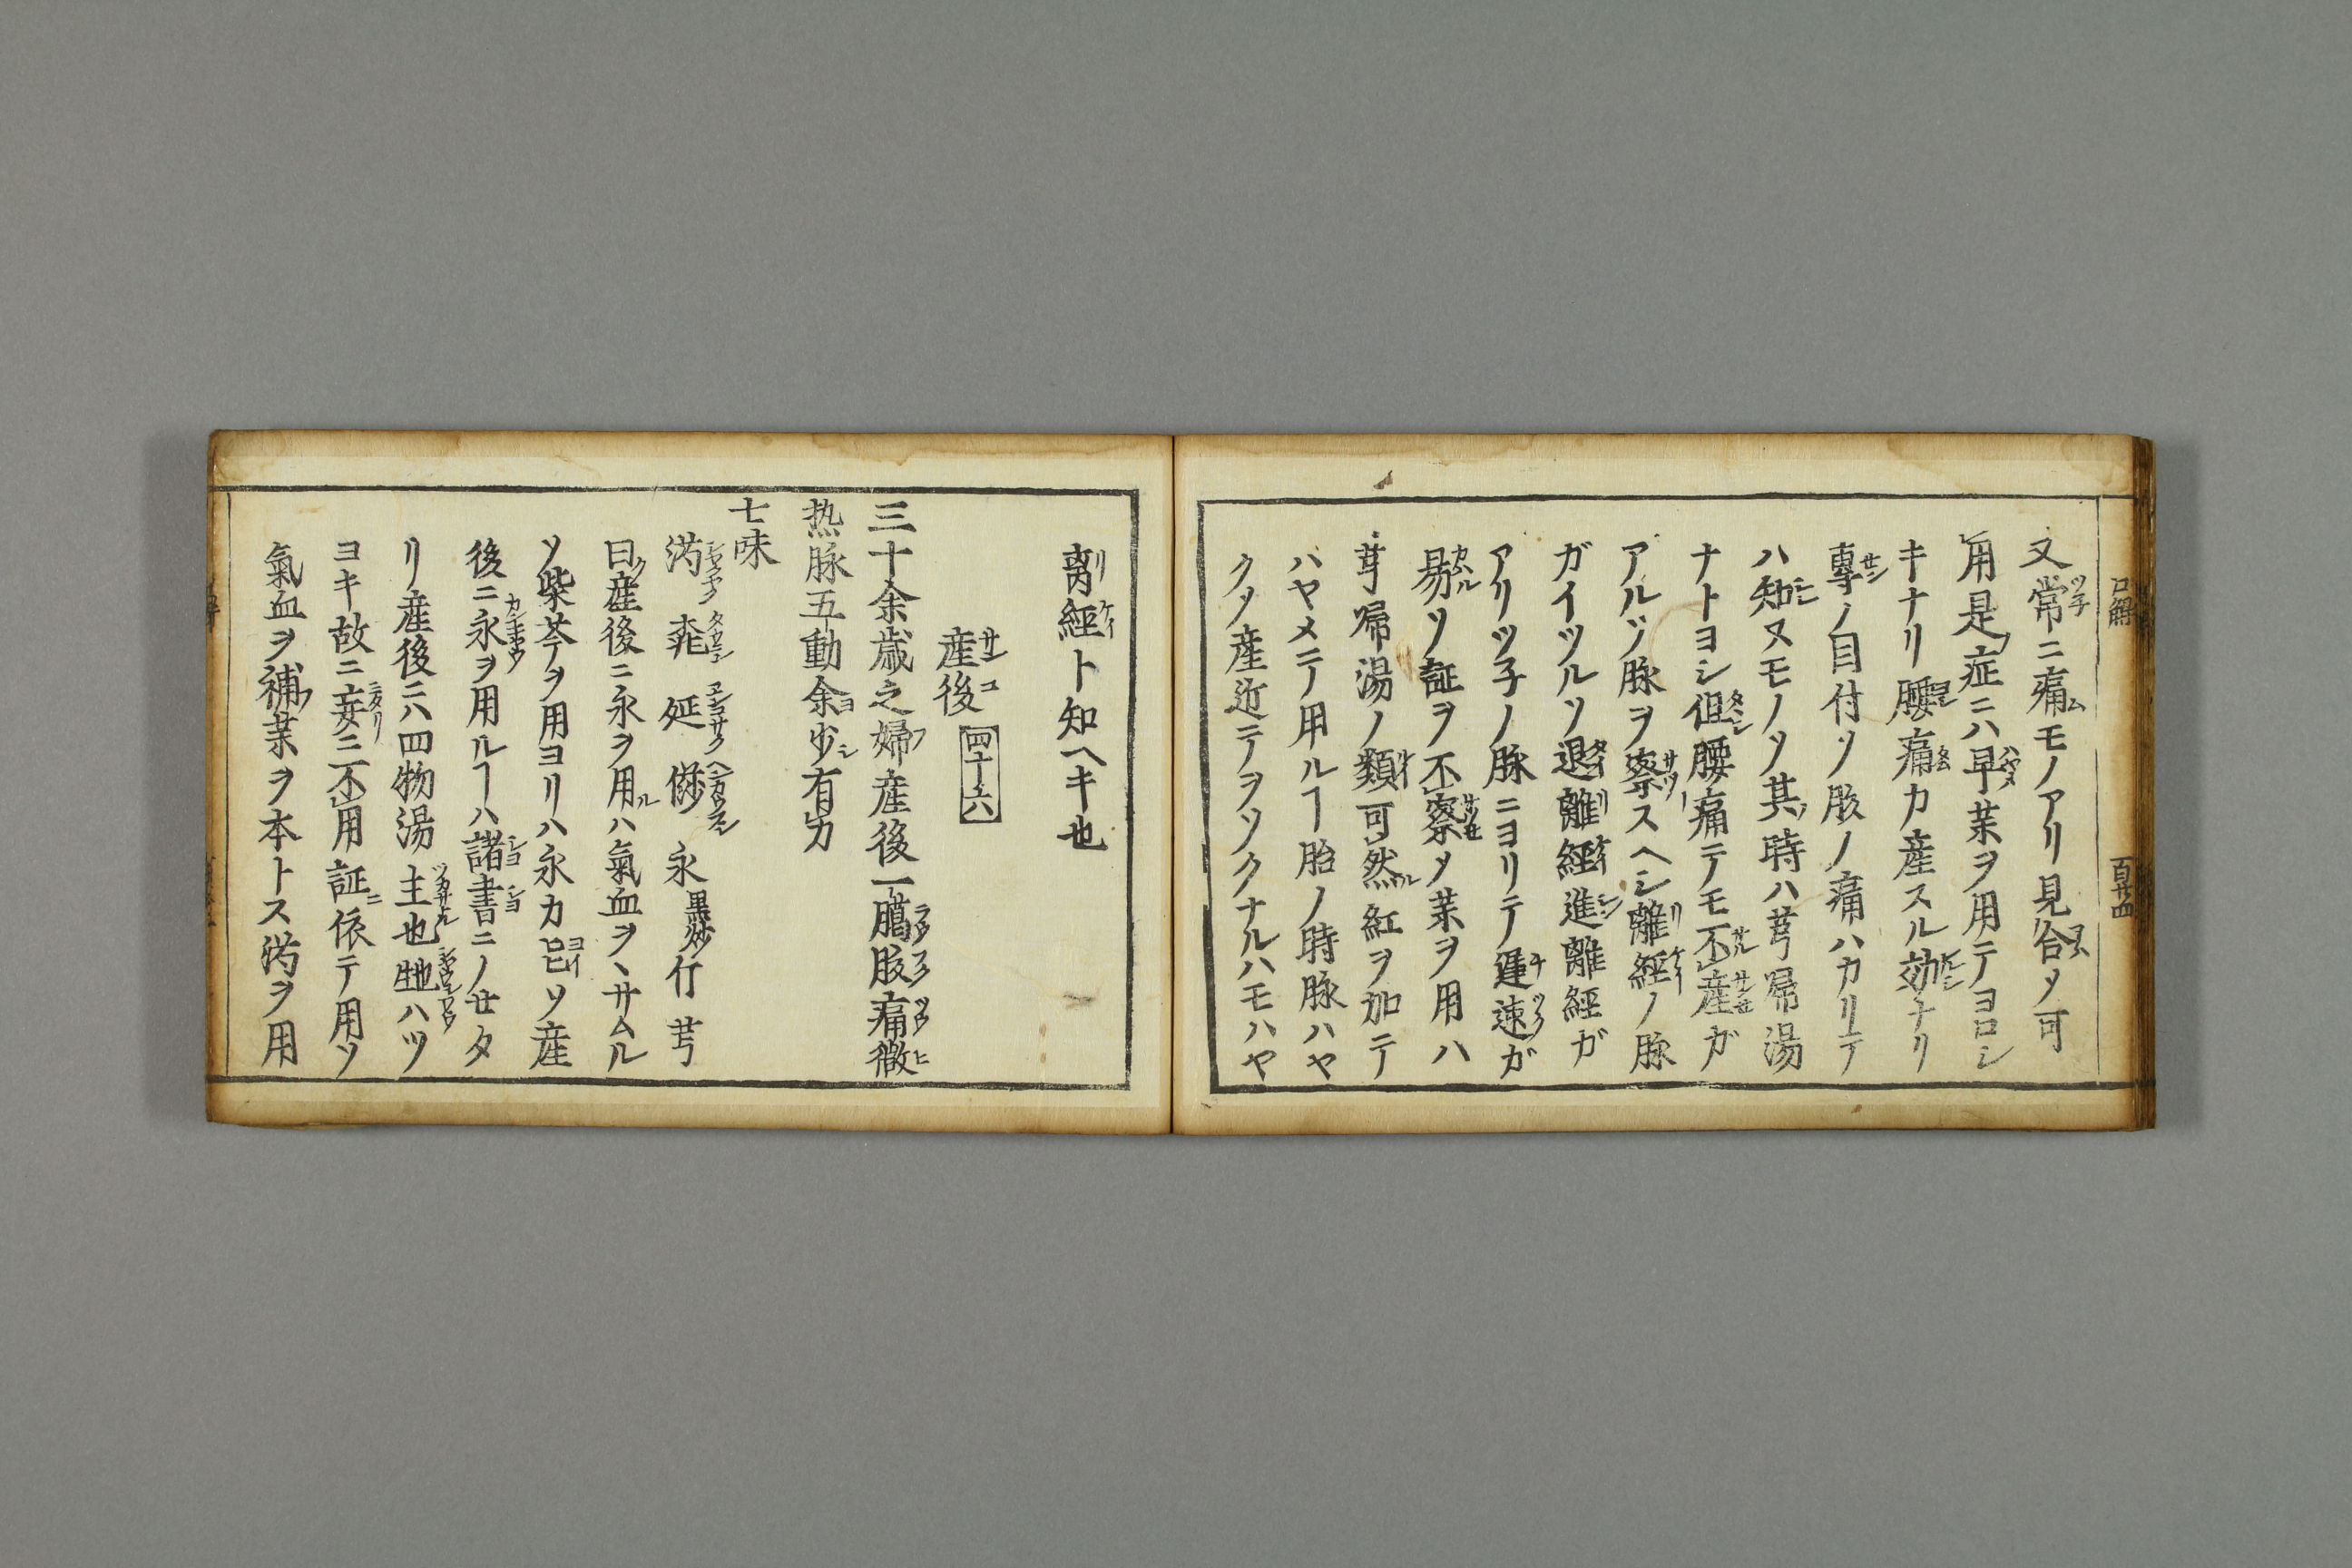 口解
百廿四
又常ニ痛モノアリ見合メ可
用是症ニハ早薬ヲ用テヨロシ
キナリ腰痛カ産スル効ナリ
專ノ目付ソ股ノ痛ハカリテ
ハ知ヌモノソ其時ハ芎帰湯
ナトヨシ但腰痛テモ不産ガ
アルゾ脉ヲ察スヘシ離經ノ脉
ガイツルソ退離經進離經ガ
アリツ子ノ脉ニヨリテ遲速ガ
易ソ証ヲ不察メ薬ヲ用ハ
芎帰湯ノ類可然紅ヲ加テ
ハヤメニテ用ルヿ胎ノ時脉ハヤ
クメ産近テヲソクナルハモハヤ
離經ト知ヘキ也
産後 四十六
三十余歳之婦産後一臈股痛微
熱脉五動余少有力
七味
芍 延 永黒炒 行 芎
曰産後ニ永ヲ用ルハ氣血ヲヽサムル
ソ柴芩ヲ用ヨリハ永カ ソ産
後ニ永ヲ用ルヿハ諸書ニノセタ
リ産後ニハ四物湯主也 ハツ
ヨキ故ニ妄ニ不用証依テ用ソ
氣血ヲ補薬ヲ本トス芍ヲ用